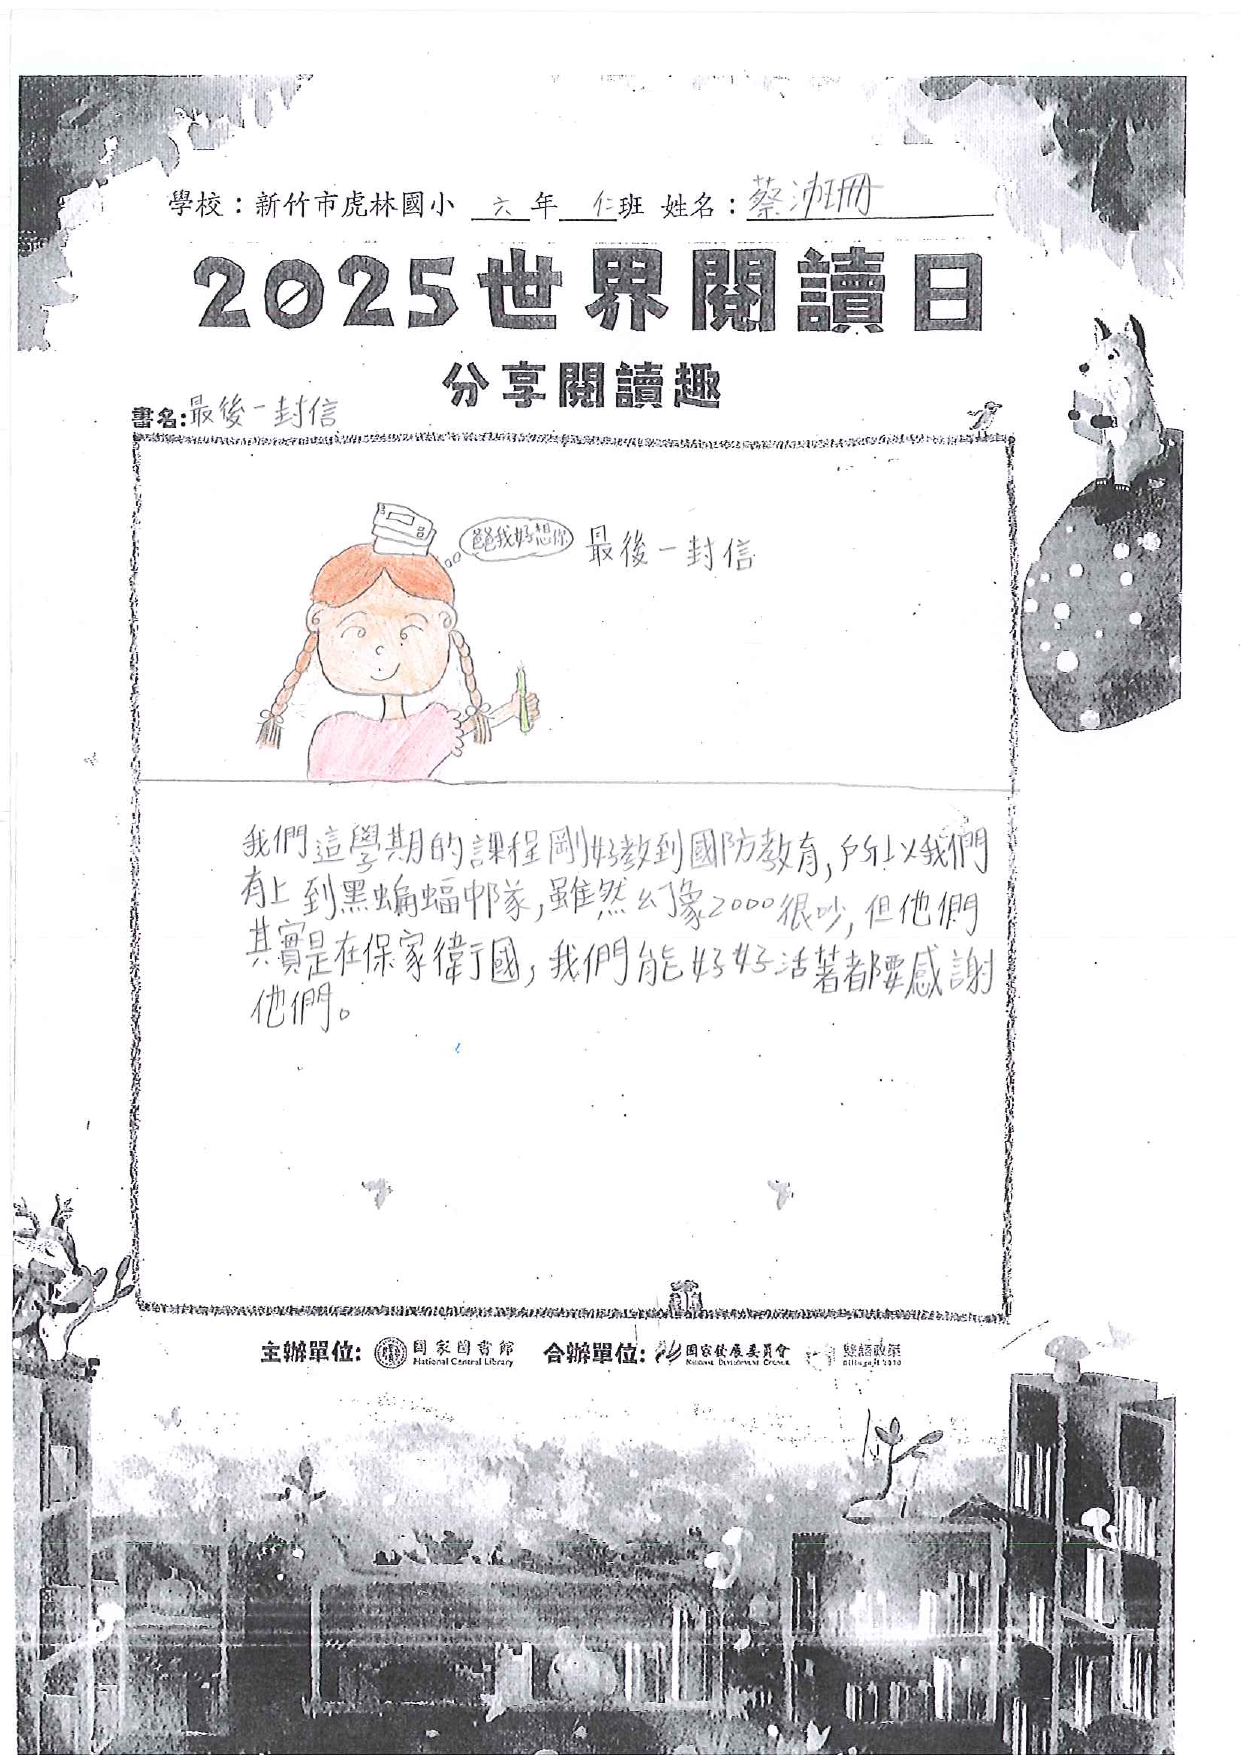 學校：新竹市虎林國小 六年 仁班 姓名：蔡沛珊
2025世界閱讀日
分享閱讀趣
書名:最後一封信
爸爸我好想你
最後一封信
我們這學期的課程剛好教到國防教育,所以我們
有上到黑蝙蝠中隊,雖然幺像2000很吵,但他們
其實是在保家衛國,我們能好好活著都要感謝
他們。
主辦單位: 國家圖書館 合辦單位: 國家發展委員會 雙語政策
National Central Library National Development Council Bilingual 2030